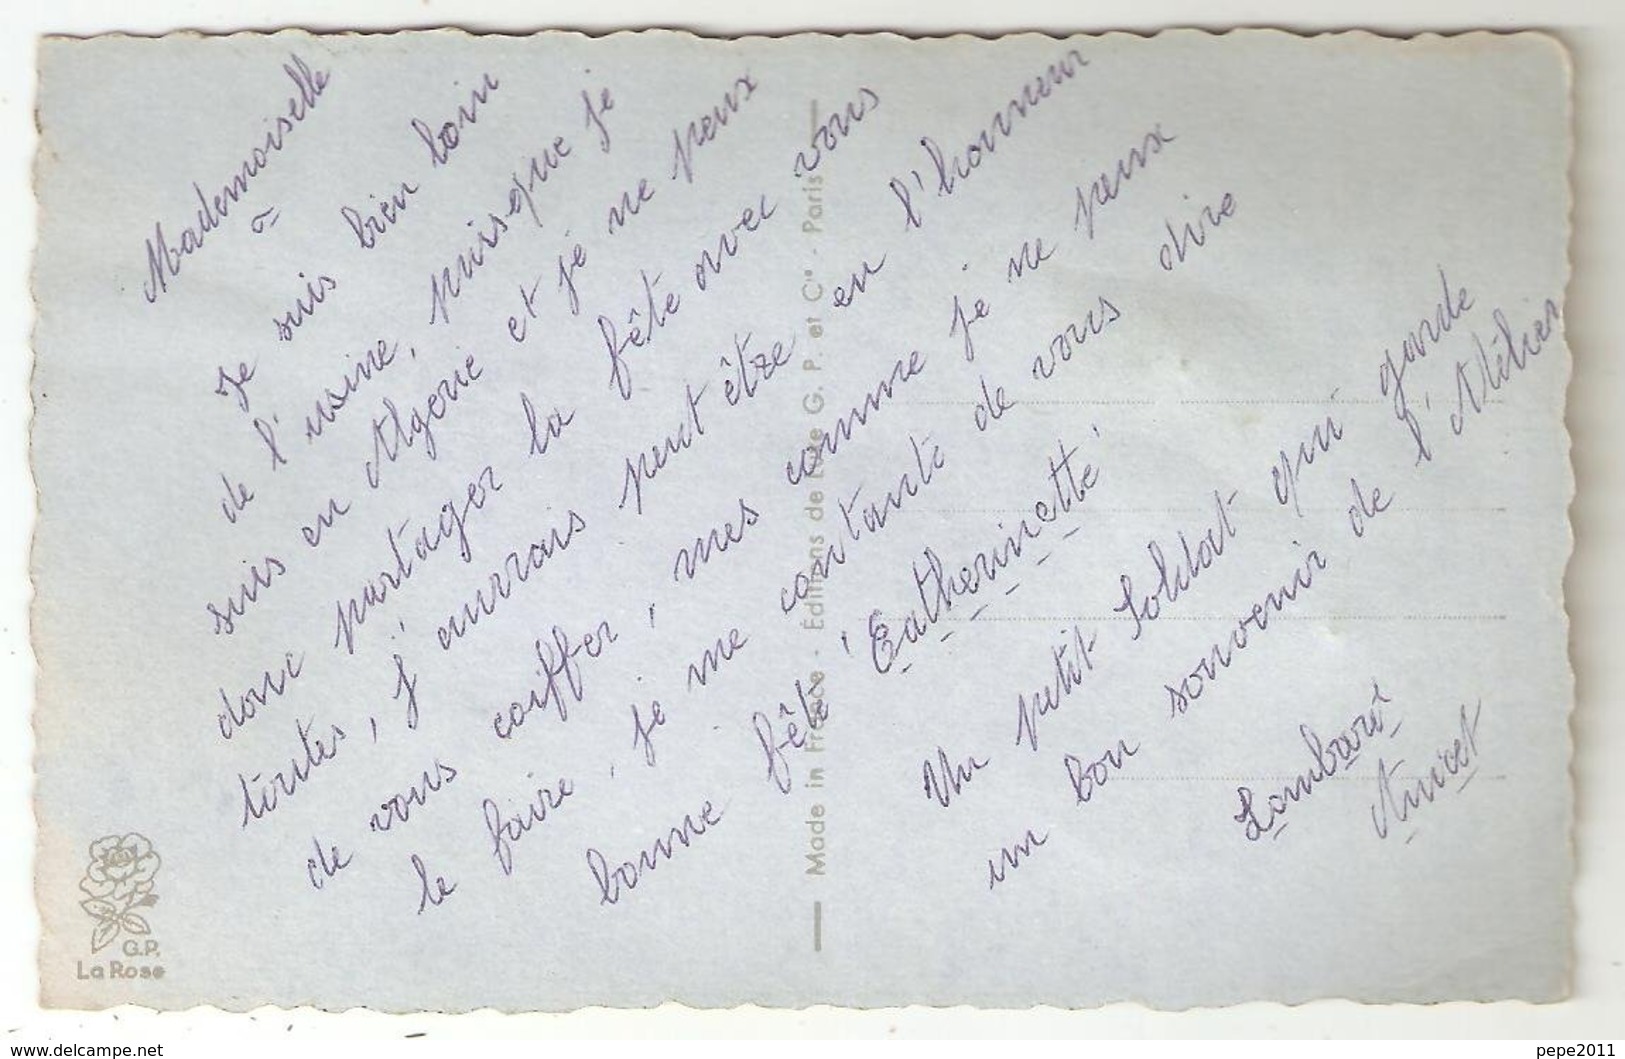 Mademoiselle
Je suis bien loin
de l'usine, puisque je
suis en Algerie et je ne peux
donc partager la fête avec vous
toutes, j'aurrais peut être en l'honneur
de vous coiffer, mes comme je ne peux
le faire, je me contante de vous dire
bonne fête 'Catherinette'
Un petit Soldat qui garde
un bon souvenir de l'Atélier
Lombard
Anicet
Made in France - Éditions de Luxe G. P. et Cie - Paris
G.P.
La Rose
www.delcampe.net
pepe2011